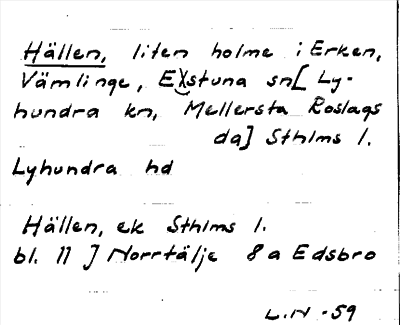 Hällen, liten holme i Erken,
Vämlinge, Estuna sn[ Ly-
hundra kn, Mellersta Roslags
da] Sthlms l.
Lyhundra hd
Hällen, ek Sthlms l.
bl. 11 ] Norrtälje 8a Edsbro
L.N -59